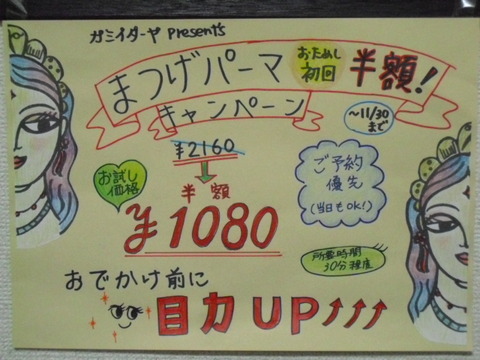 ガミイダーヤ presents
まつげパーマ
おためし
初回
半額!
キャンペーン
~11/30
まで
¥2160
お試し
価格
半額
¥1080
ご予約
優先
(当日もOK!)
所要時間
30分程度
おでかけ前に
目力UP↑↑↑